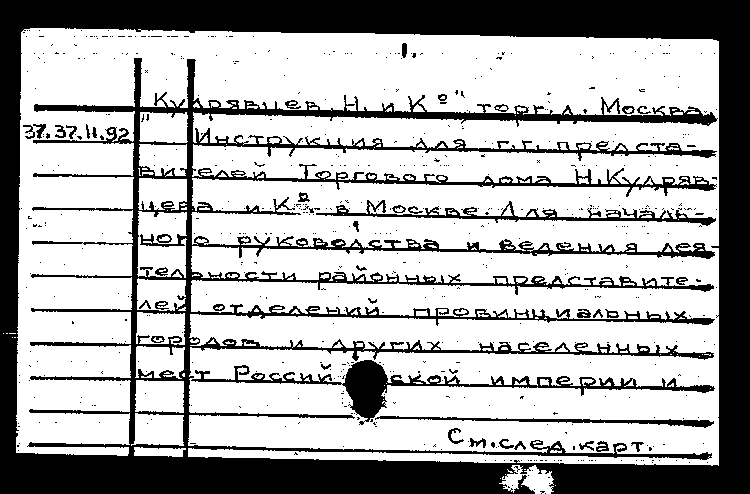 1.
"Кудрявцев Н. и Кº" торг. д. Москва.
37.37.11.92
" Инструкция для г.г. предста-
вителей Торгового дома Н. Кудряв-
цева и Кº в Москве. Для началь-
ного руководства и ведения дея-
тельности районных представите-
лей отделений провинциальных
городов и других населенных
мест Российской империи и
См. след. карт.